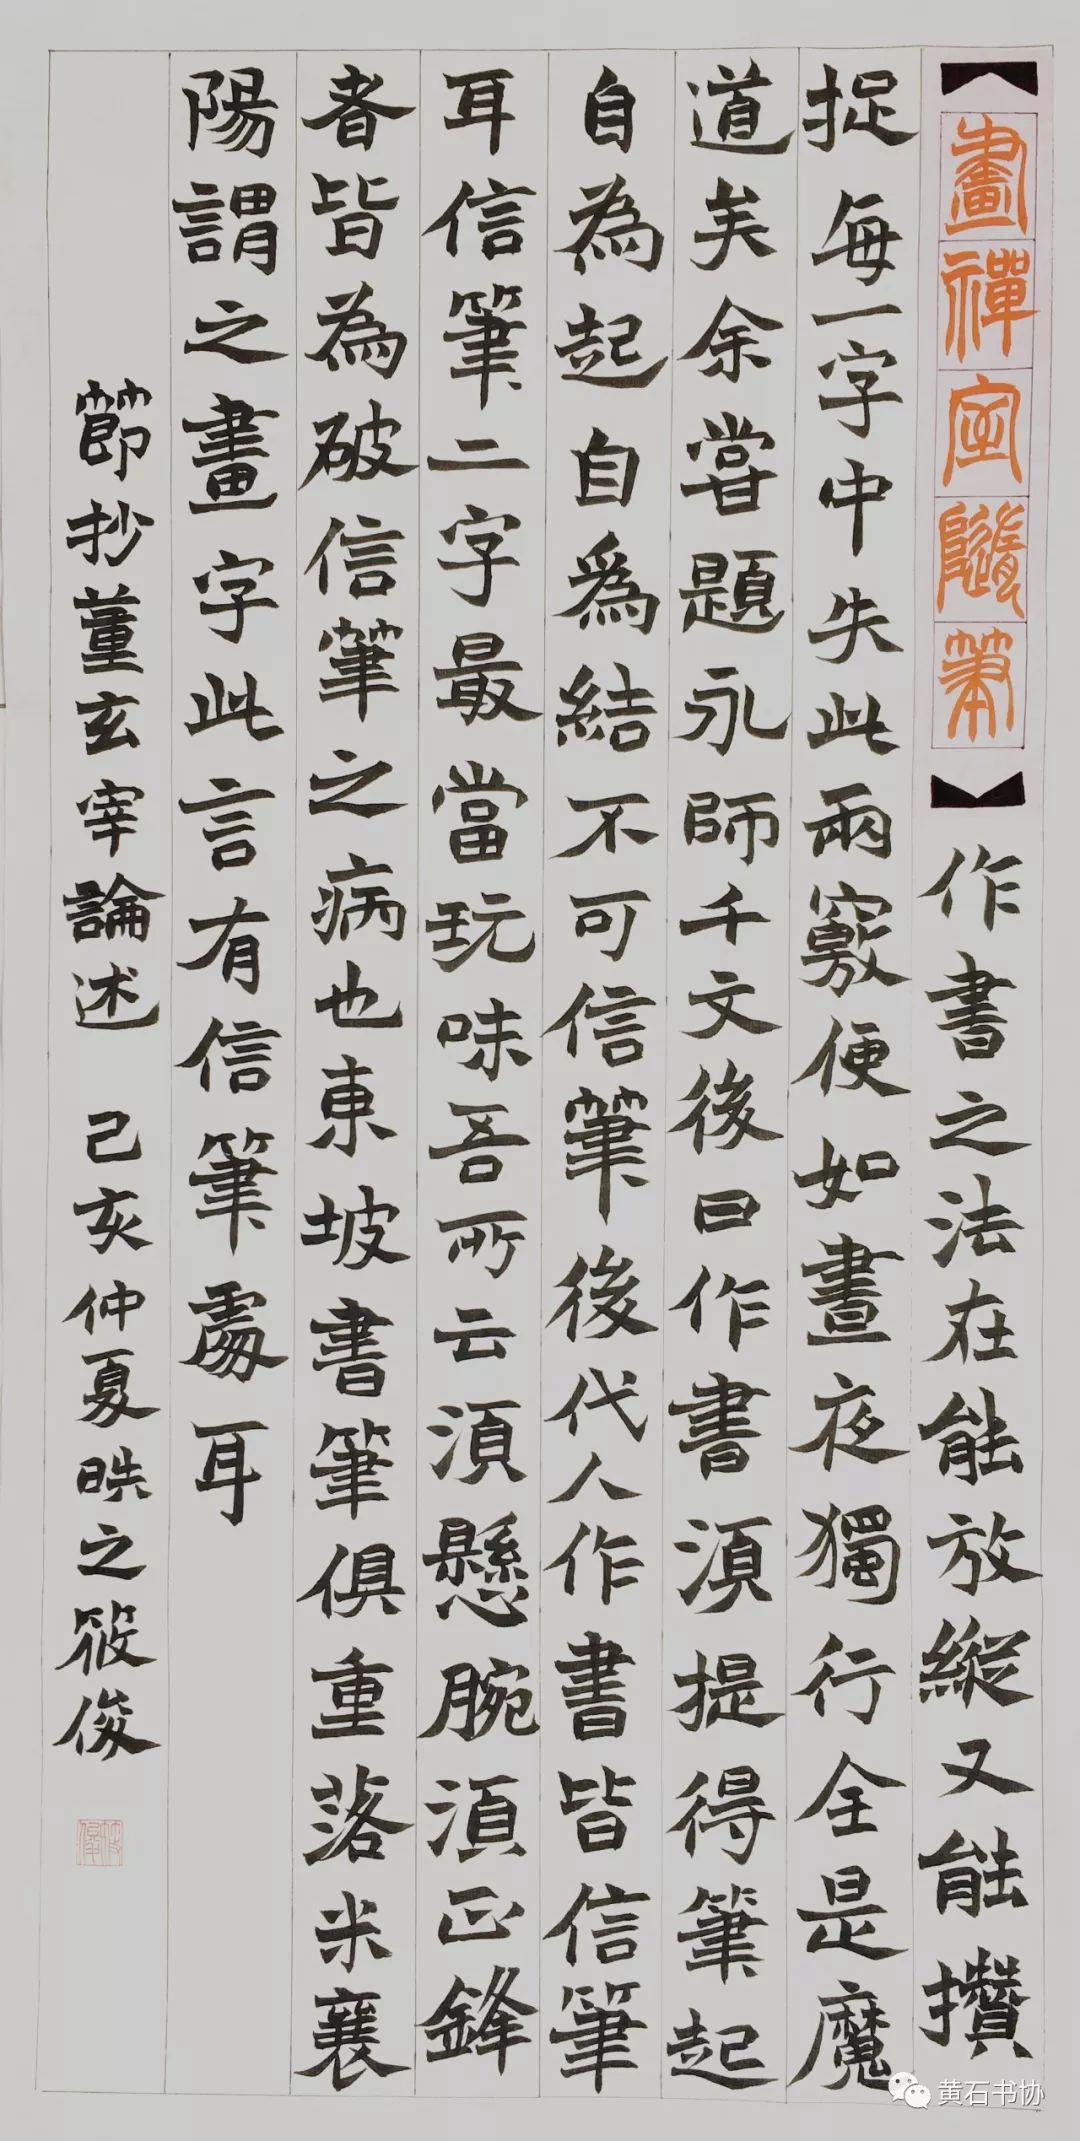 【畫禪室隨筆】作書之法在能放縱又能攢
捉每一字中失此兩竅便如晝夜獨行全是魔
道矣余嘗題永師千文後曰作書須提得筆起
自為起自為結不可信筆後代人作書皆信筆
耳信筆二字最當玩味吾所云須懸腕須正鋒
者皆為破信筆之病也東坡書筆俱重落米襄
陽謂之畫字此言有信筆處耳
節抄董玄宰論述 己亥仲夏晧之筱俊
黄石书协